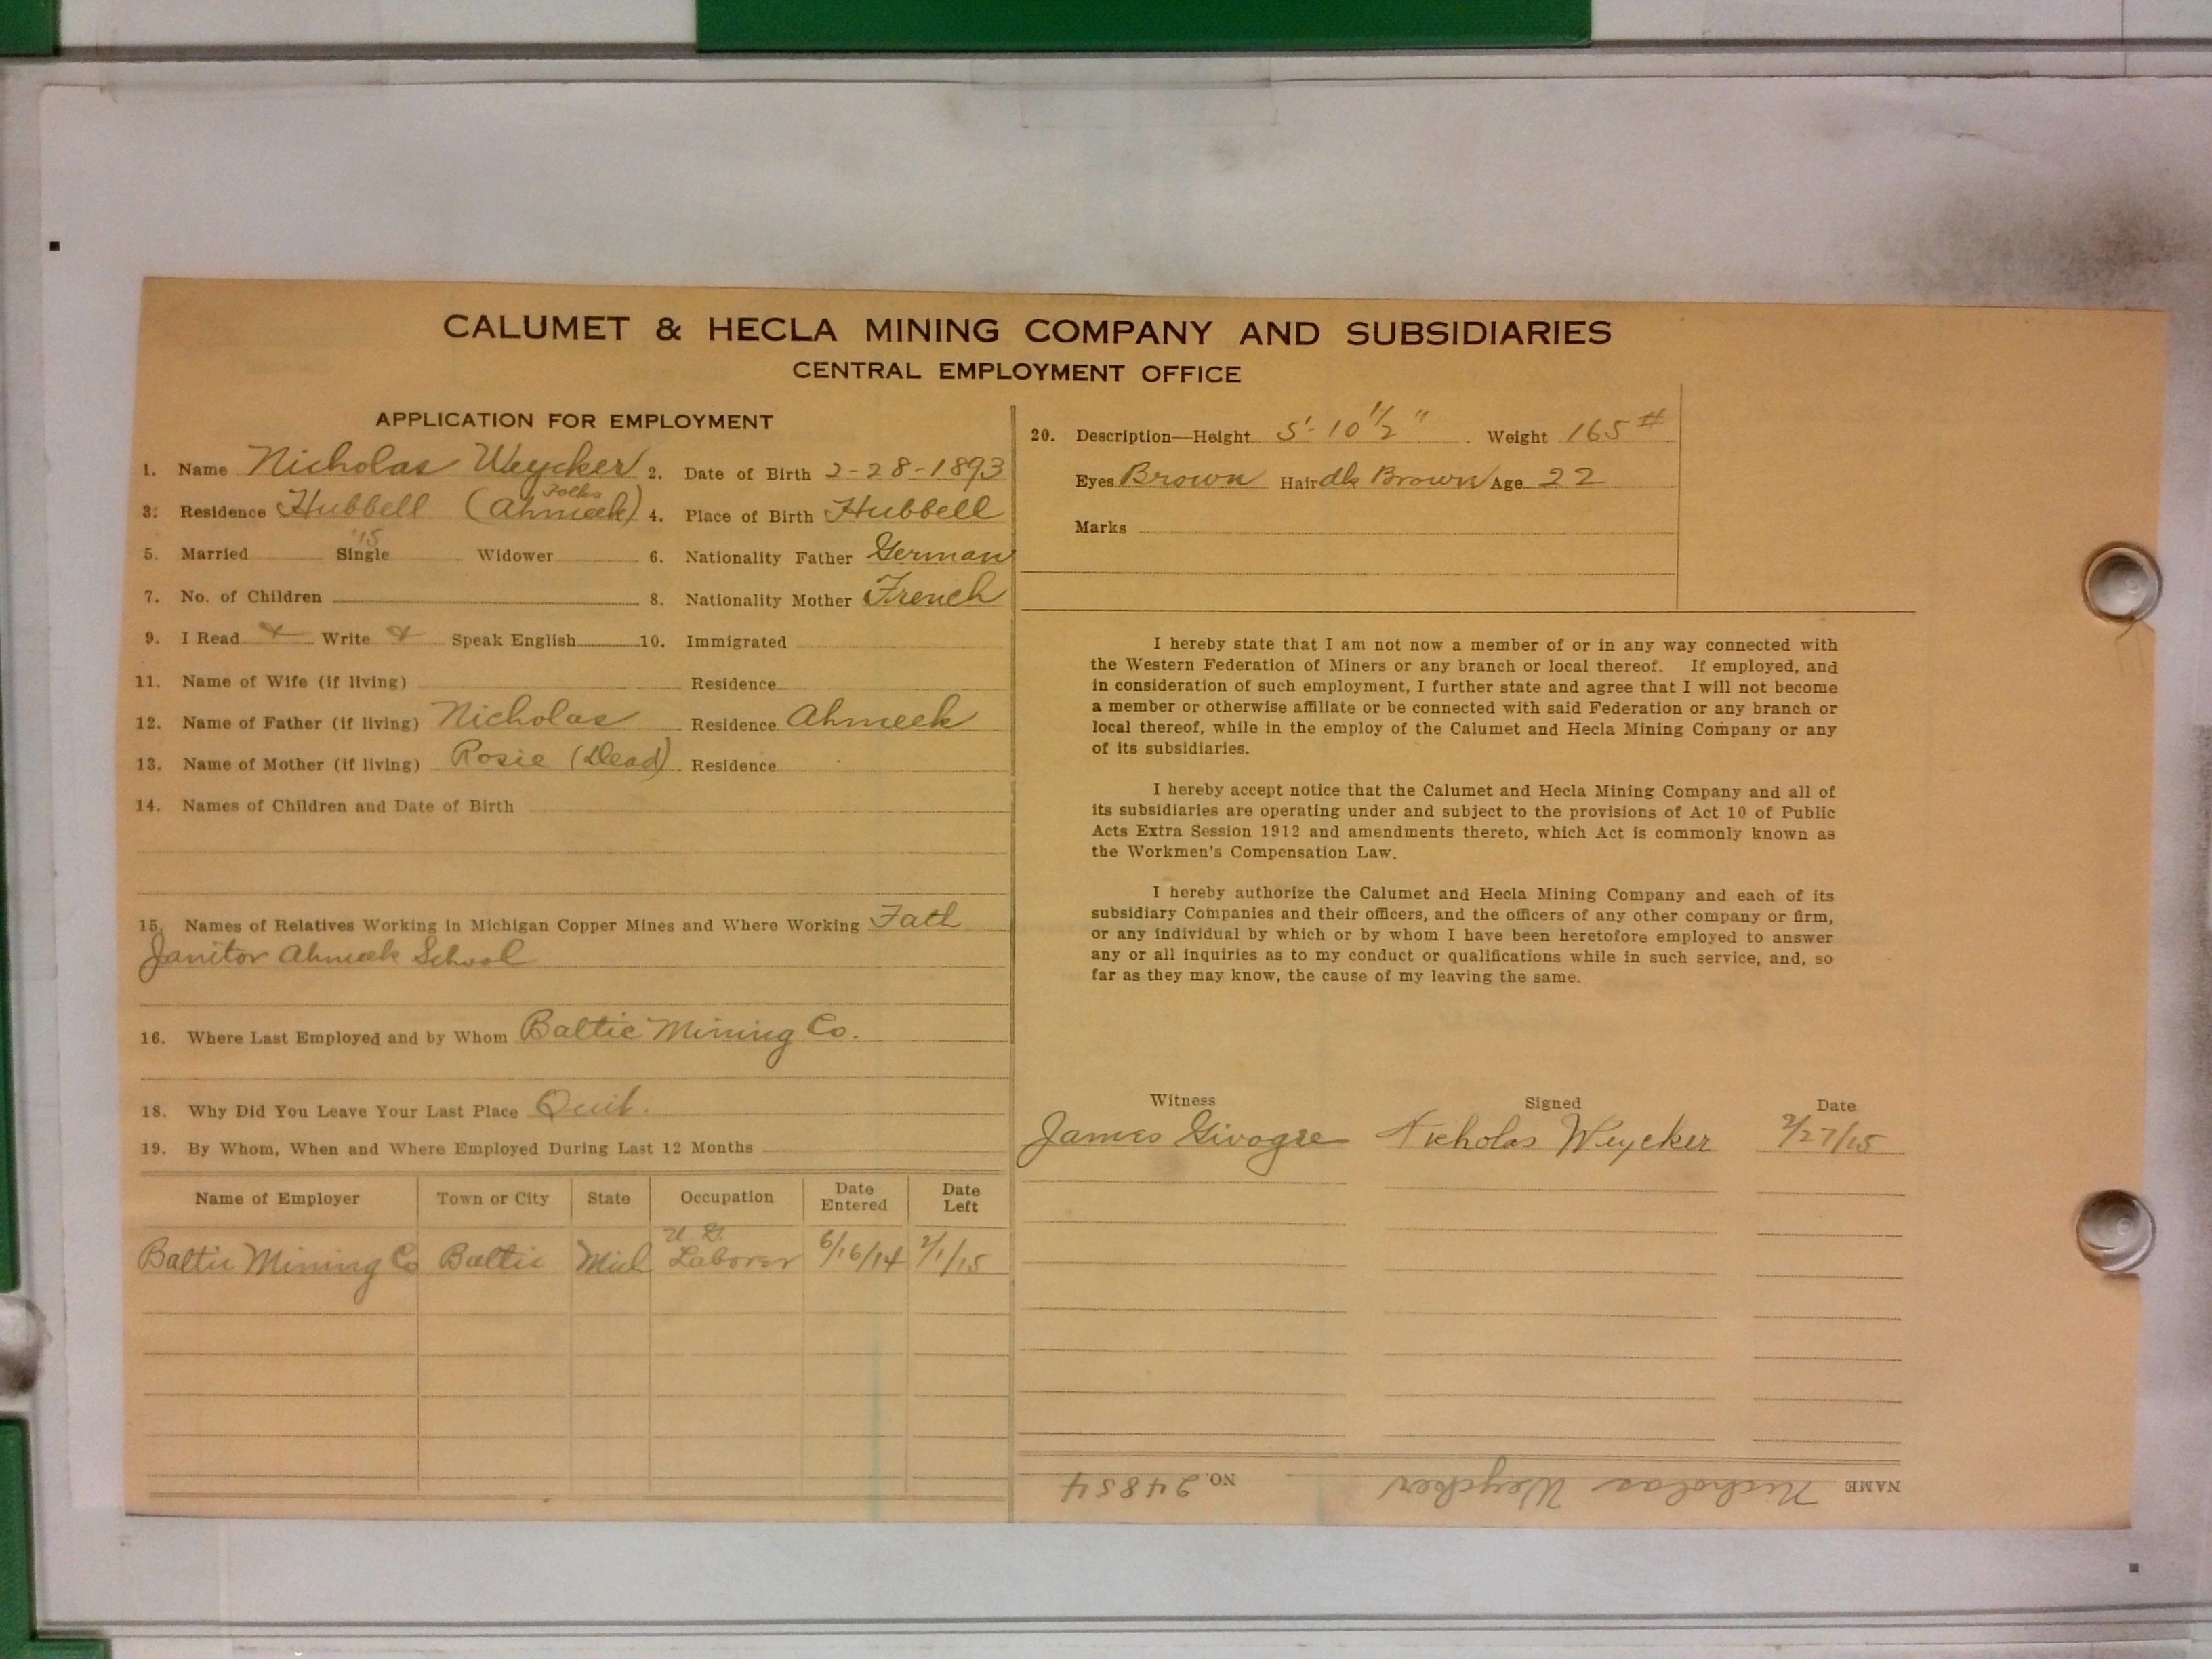 CALUMET & HECLA MINING COMPANY AND SUBSIDIARIES
CENTRAL EMPLOYMENT OFFICE
APPLICATION FOR EMPLOYMENT
1. Name Nicholas Weycker 2. Date of Birth 2-28-1893
3. Residence Hubbell (Folks Ahmeek) 4. Place of Birth Hubbell
5. Married Single '15 Widower 6. Nationality Father German
7. No. of Children 8. Nationality Mother French
9. I Read Write Speak English 10. Immigrated
11. Name of Wife (if living) Residence
12. Name of Father (if living) Nicholas Residence Ahmeek
13. Name of Mother (if living) Rosie (Dead) Residence
14. Names of Children and Date of Birth
15. Names of Relatives Working in Michigan Copper Mines and Where Working Fath
Janitor Ahmeek School
16. Where Last Employed and by Whom Baltic Mining Co.
18. Why Did You Leave Your Last Place Quit.
19. By Whom, When and Where Employed During Last 12 Months
Name of Employer Town or City State Occupation Date Entered Date Left
Baltic Mining Co Baltic Mich U. G. Laborer 6/16/14 2/1/15
20. Description—Height 5'-10 1/2" Weight 165#
Eyes Brown Hair dk Brown Age 22
Marks
I hereby state that I am not now a member of or in any way connected with
the Western Federation of Miners or any branch or local thereof. If employed, and
in consideration of such employment, I further state and agree that I will not become
a member or otherwise affiliate or be connected with said Federation or any branch or
local thereof, while in the employ of the Calumet and Hecla Mining Company or any
of its subsidiaries.
I hereby accept notice that the Calumet and Hecla Mining Company and all of
its subsidiaries are operating under and subject to the provisions of Act 10 of Public
Acts Extra Session 1912 and amendments thereto, which Act is commonly known as
the Workmen's Compensation Law.
I hereby authorize the Calumet and Hecla Mining Company and each of its
subsidiary Companies and their officers, and the officers of any other company or firm,
or any individual by which or by whom I have been heretofore employed to answer
any or all inquiries as to my conduct or qualifications while in such service, and, so
far as they may know, the cause of my leaving the same.
Witness Signed Date
James Nicholas Weycker 2/27/15
NAME Nicholas Weycker NO. 24854